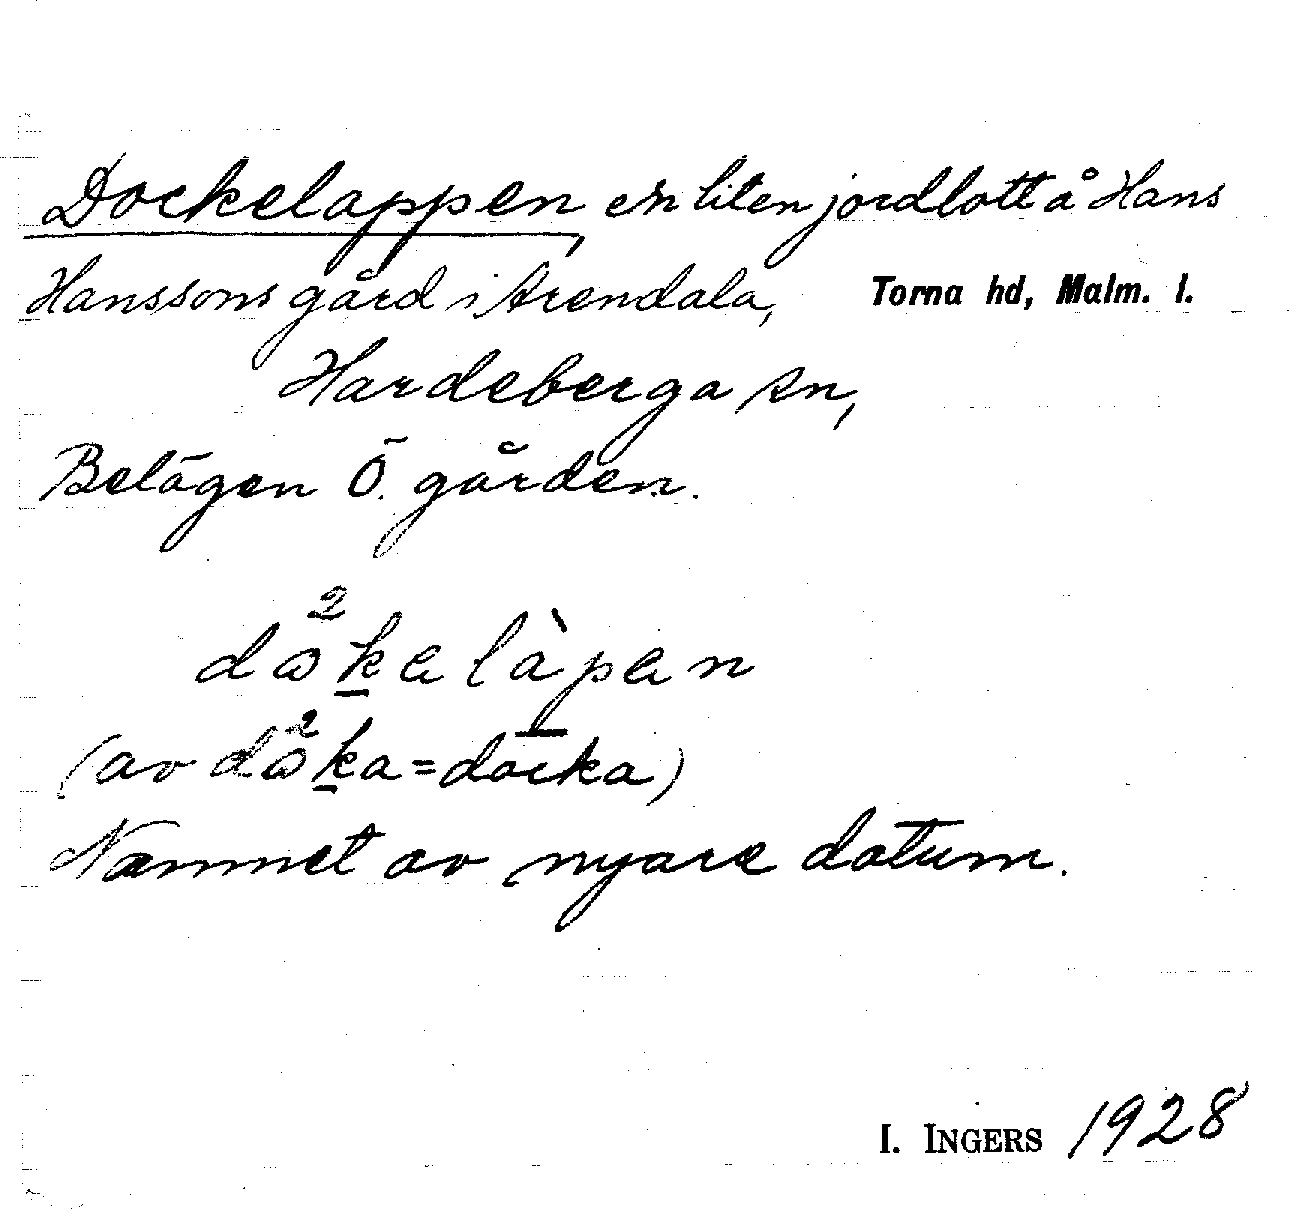 Dockelappen, en liten jordlott å Hans
Hanssons gård i Arendala, Torna hd, Malm. l.
Hardeberga sn,
Belägen Ö. gården.
då²kelàpen
(av då²ka = docka)
Namnet av nyare datum.
I. INGERS 1928